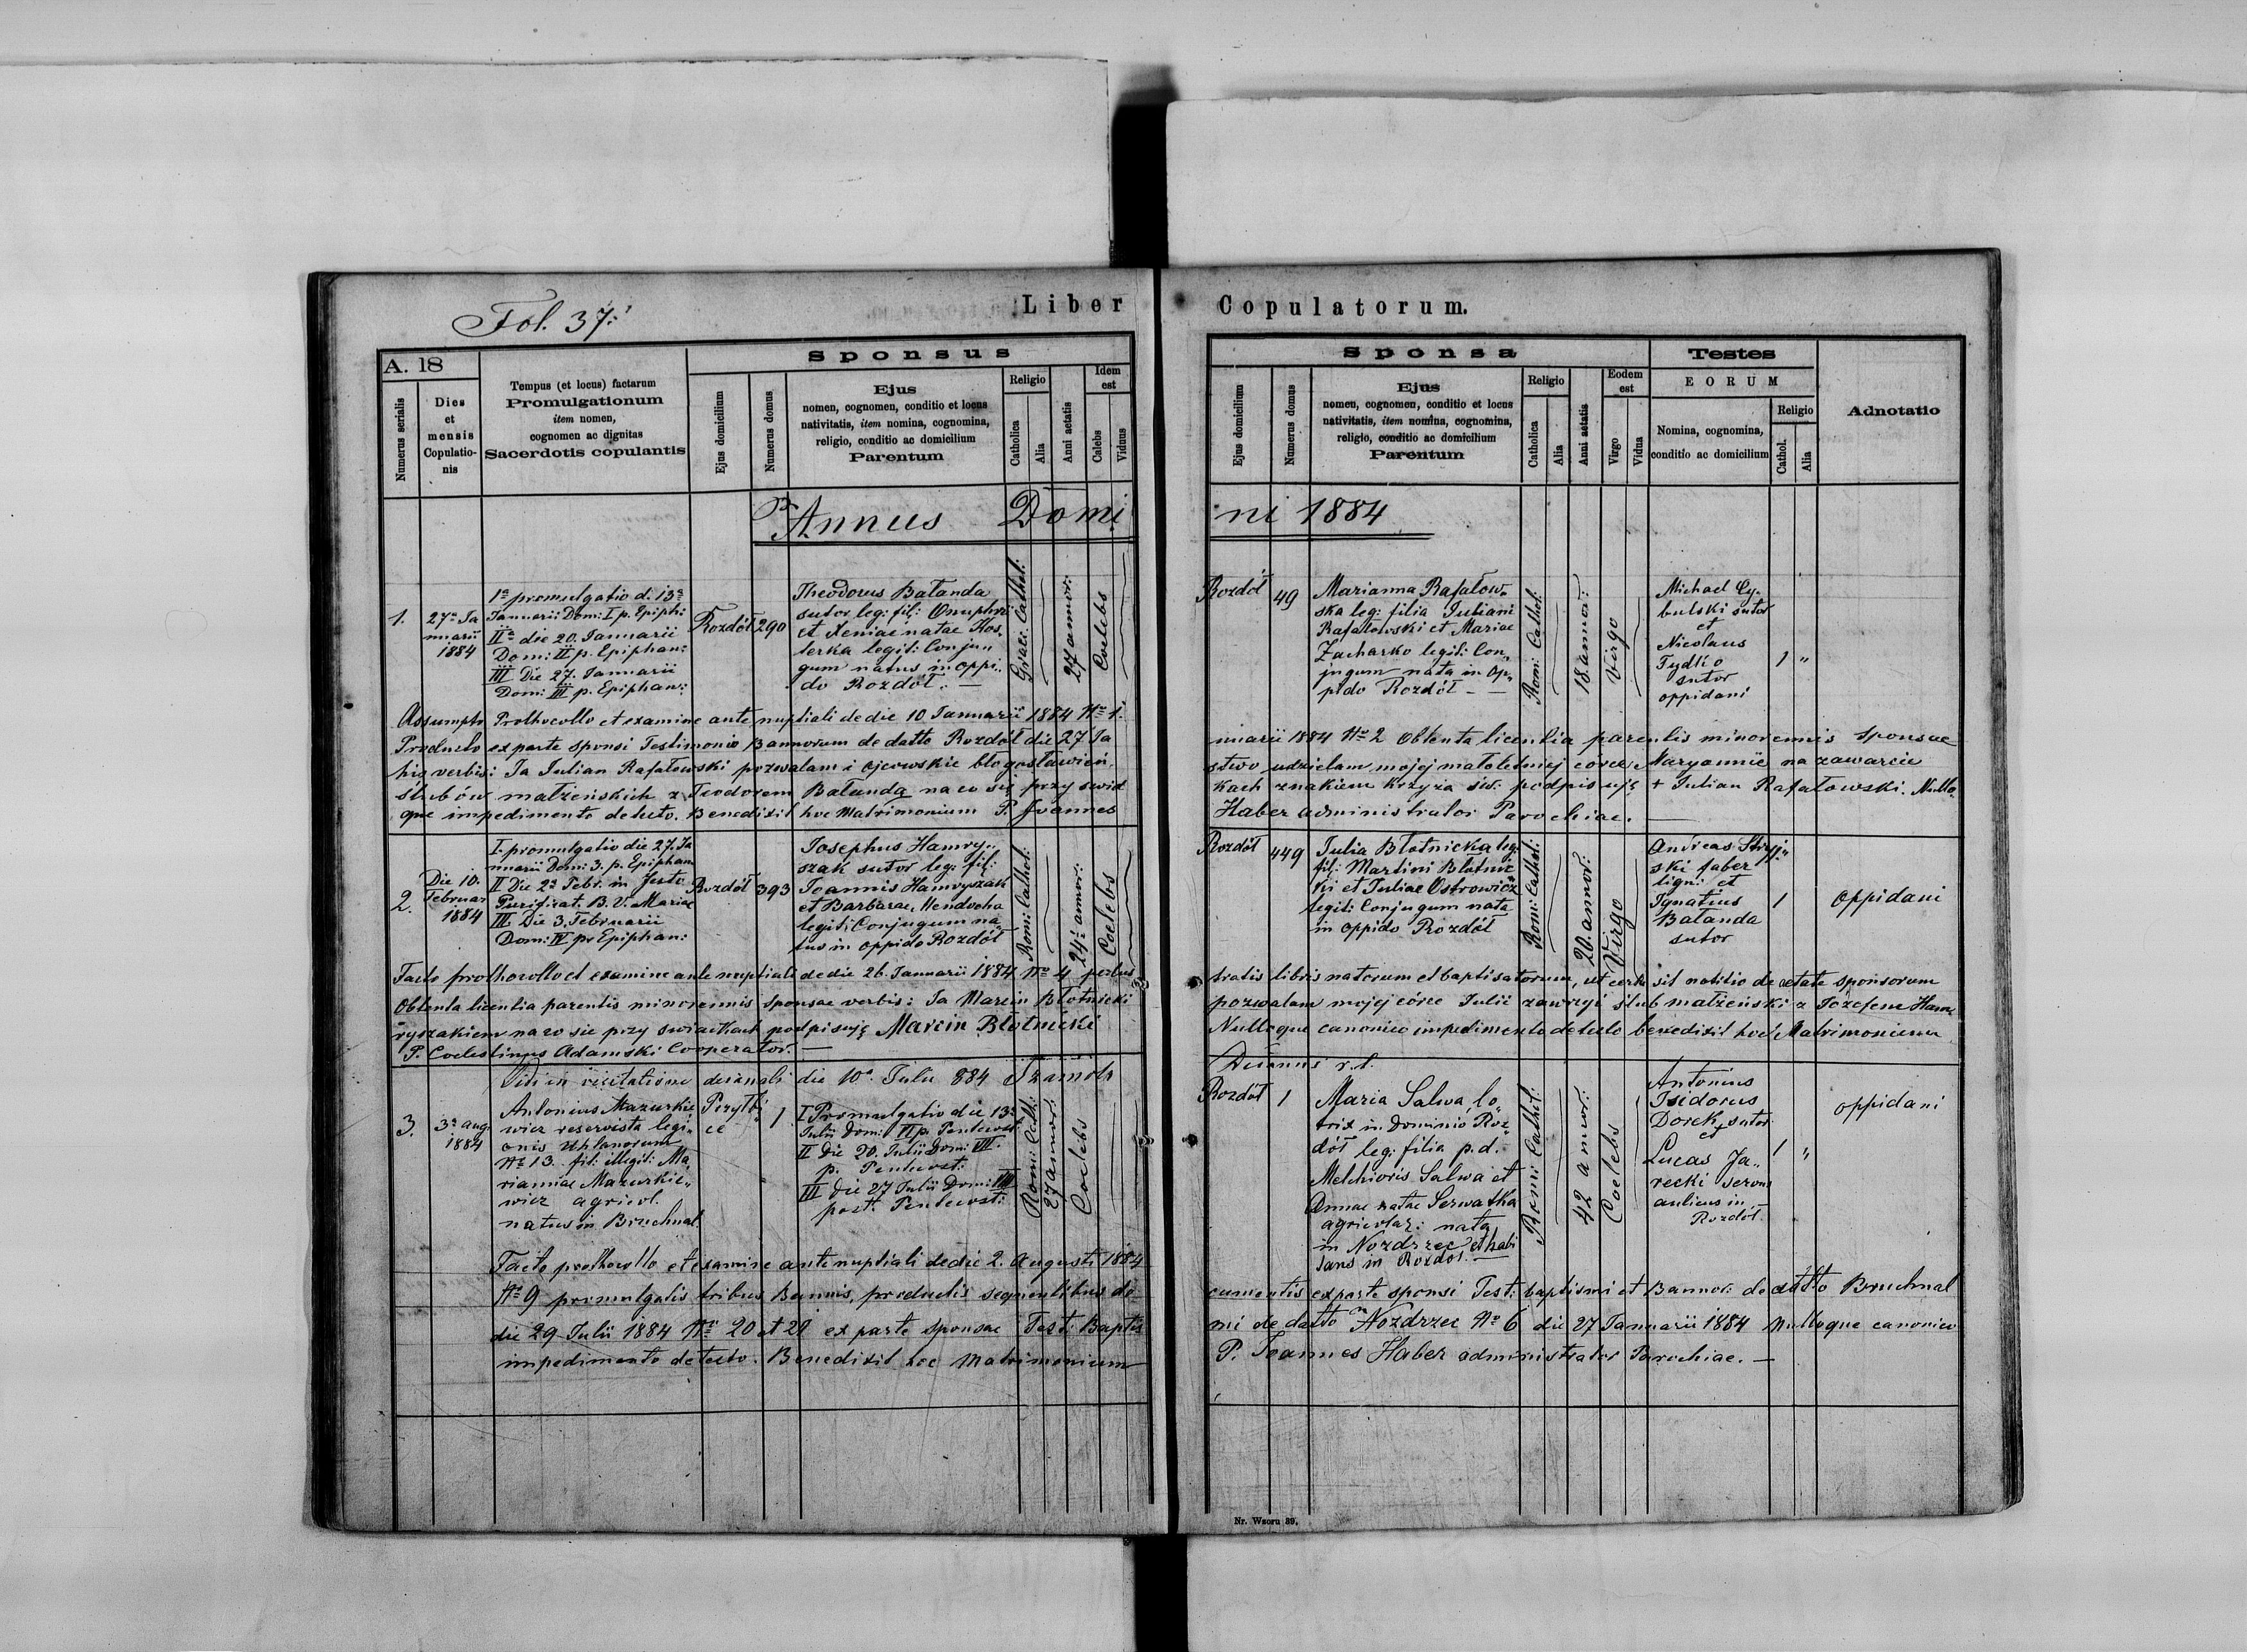 Fol. 37.
Liber
A. 18
Numerus serialis
Dies
et
mensis
Copulatio-
nis
Tempus (et locus) factarum
Promulgationum
item nomen,
cognomen ac dignitas
Sacerdotis copulantis
Sponsus
Ejus domicilium
Numerus domus
Ejus
nomen, cognomen, conditio et locus
nativitatis, item nomina, cognomina,
religio, conditio ac domicilium
Parentum
Religio
Catholica
Alia
Anni aetatis
Idem
est
Calebs
Viduus
Annus Domi
1.
27a Ja
nuarii
1884
1a promulgatio d. 13a
Januarii Dom: I p. Epiph:
IIa die 20. Januarii
Dom: II p. Epiphan:
III Die 27. Januarii
Dom: III p. Epiphan:
Rozdół
290
Theodorus Bałanda
sutor leg: fil: Onuphri
et Xeniae natae Kos„
terka legit: Conju„
gum natus in oppi„
do Rozdół. —
Graeci Cathol:
27 annor:
Coelebs
Assumpto Prothocollo et examine ante nuptiali de die 10 Januarii 1884 No 1.
Producto ex parte sponsi Testimonio Bannorum de datto Rozdół die 27 Ja
his verbis: Ja Julian Rafałowski pozwalam i ojcowskie błogosławień„
ślubów małżeńskich z Teodorem Bałandą na co się przy świad
que impedimento detecto. Benedixit hoc Matrimonium P. Joannes
2.
Die 10.
Februar
1884
I. promulgatio die 27. Ja
nuarii Dom: 3. p. Epiphan
II Die 2a Febr. in festo
Purificat. B. V. Mariae
III. Die 3. Februarii
Dom: IV p. Epiphan:
Rozdół
393
Josephus Hamry„
szak sutor leg: fil:
Joannis Hamryszak
et Barbarae Wendocha
legit: Conjugum na„
tus in oppido Rozdół
Rom: Cathol:
24 annor:
Coelebs
Facto prothocollo et examine ante nuptiali de die 26. Januarii 1884 No 4 perlus
Obtenta licentia parentis minorennis sponsae verbis: Ja Marcin Błotnicki
ryszakiem na co sie przy świadkach podpisuję Marcin Błotnicki
P. Coelestinus Adamski Cooperator. —
Vidi in visitatione decanali die 10a. Julii 884
3.
3a Aug
1884
Antonius Mazurkie
wicz reservista legi„
onis Uhlanorum
No 13. fil: illegit: Ma„
riannae Mazurkie„
wicz agricol.
natus in Bruchnal.
Przyłbi
ce
1
I Promulgatio die 13a
Julii Dom: VI p. Pentecost:
II Die 20. Julii Dom: VII.
p. Pentecost:
III Die 27 Julii Dom: VIII
post. Pentecost:
Rom: Cath:
27 annor:
Coelebs
Facto prothocollo et examine ante nuptiali de die 2. Augusti 1884
No 9 promulgatis tribus Bannis, productis sequentibus do
die 29 Julii 1884 No 20 et 21 ex parte sponsae Test: Baptis
impedimento detecto. Benedixit hoc Matrimonium
Copulatorum.
Sponsa
Ejus domicilium
Numerus domus
Ejus
nomen, cognomen, conditio et locus
nativitatis, item nomina, cognomina,
religio, conditio ac domicilium
Parentum
Religio
Catholica
Alia
Anni aetatis
Eodem
est
Virgo
Vidua
Testes
EORUM
Nomina, cognomina,
conditio ac domicilium
Religio
Cathol.
Alia
Adnotatio
ni 1884
Rozdół
49
Marianna Rafałow„
ska leg: filia Juliani
Rafałowski et Mariae
Zacharko legit: Con„
jugum nata in op„
pido Rozdół - —
Rom: Cathol:
18 annor:
Virgo
Michael Cy„
bulski sutor
et
Nicolaus
Fydło
sutor
oppidani
1 "
nuarii 1884 No 2 Obtenta licentia parentis minorennis sponsae
stwo udzielam mojej małoletniej córce Maryannie na zawarcie
kach znakiem krzyża św. podpisuję + Julian Rafałowski. Nullo„
Haber administrator Parochiae. —
Rozdół
449
Julia Błotnicka leg:
fil: Martini Błotnic
ki et Juliae Ostrowicz
legit: Conjugum nata
in oppido Rozdół
Rom: Cathol:
20. annor:
Virgo
Andreas Stryj„
ski faber
lign: et
Ignatius
Bałanda
sutor
1
oppidani
tratis libris natorum et baptisatorum, ut certe sit notitio de aetate sponsorum
pozwalam mojej córce Julii zawrzyć ślub małżeński z Józefem Ham
Nulloque canonico impedimento detecto benedixit hoc Matrimonium
Decanus r. l.
Rozdół
1
Maria Salwa lo„
trix in Dominio Roz„
dół leg: filia p. d.
Melchioris Salwa et
Annae natae Serwatka
agricolar: nata
in Nozdrzec et habi
tans in Rozdół. —
Rom: Cathol:
42 annor:
Coelebs
Antonius
Isidorus
Dorek sutor
et
Lucas Ja„
recki servus
aulicus in
Rozdół.
1 "
oppidani
cumentis ex parte sponsi Test: baptismi et Bannor: de datto Bruchnal
mi de datto Nozdrzec No 6 die 27 Januarii 1884 Nulloque canonico
P. Joannes Haber administrator Parochiae. —
Nr. Wzoru 39.